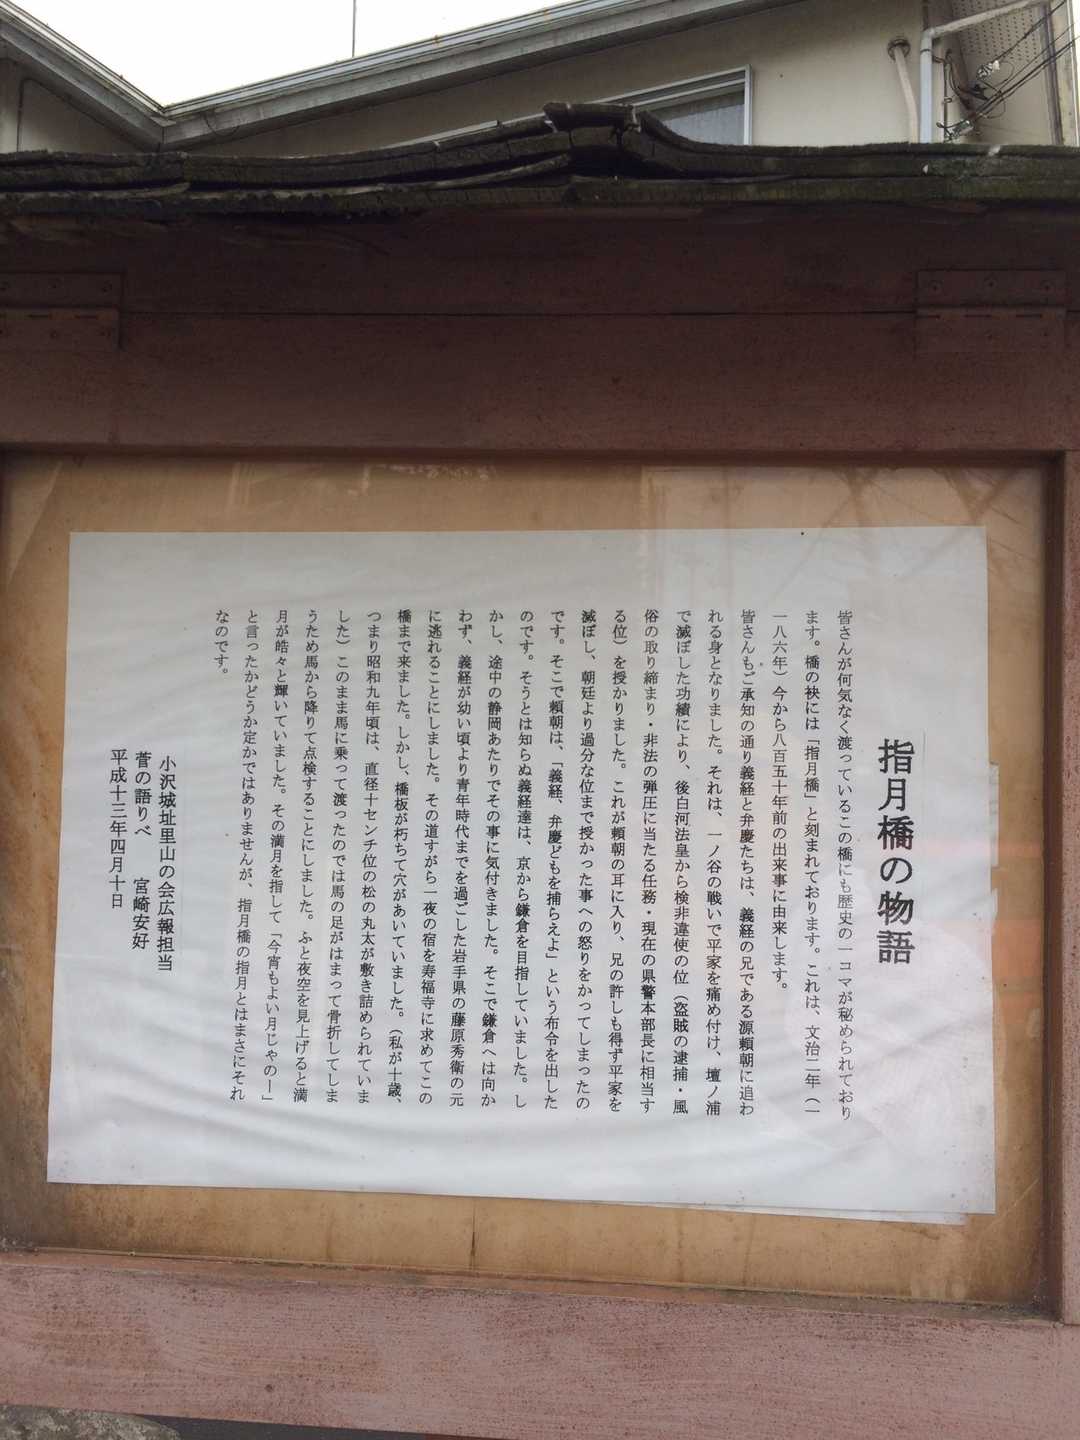 指月橋の物語
皆さんが何気なく渡っているこの橋にも歴史の一コマが秘められており
ます。橋の袂には「指月橋」と刻まれております。これは、文治二年（一
一八六年）今から八百五十年前の出来事に由来します。
皆さんもご承知の通り義経と弁慶たちは、義経の兄である源頼朝に追わ
れる身となりました。それは、一ノ谷の戦いで平家を痛め付け、壇ノ浦
で滅ぼした功績により、後白河法皇から検非違使の位（盗賊の逮捕・風
俗の取り締まり・非法の弾圧に当たる任務・現在の県警本部長に相当す
る位）を授かりました。これが頼朝の耳に入り、兄の許しも得ず平家を
滅ぼし、朝廷より過分な位まで授かった事への怒りをかってしまったの
です。そこで頼朝は、「義経、弁慶どもを捕らえよ」という布令を出した
のです。そうとは知らぬ義経達は、京から鎌倉を目指していました。し
かし、途中の静岡あたりでその事に気付きました。そこで鎌倉へは向か
わず、義経が幼い頃より青年時代までを過ごした岩手県の藤原秀衛の元
に逃れることにしました。その道すがら一夜の宿を寿福寺に求めてこの
橋まで来ました。しかし、橋板が朽ちて穴があいていました。（私が十歳、
つまり昭和九年頃は、直径十センチ位の松の丸太が敷き詰められていま
した）このまま馬に乗って渡ったのでは馬の足がはまって骨折してしま
うため馬から降りて点検することにしました。ふと夜空を見上げると満
月が皓々と輝いていました。その満月を指して「今宵もよい月じゃのー」
と言ったかどうか定かではありませんが、指月橋の指月とはまさにそれ
なのです。
小沢城址里山の会広報担当
菅の語りべ　宮崎安好
平成十三年四月十日